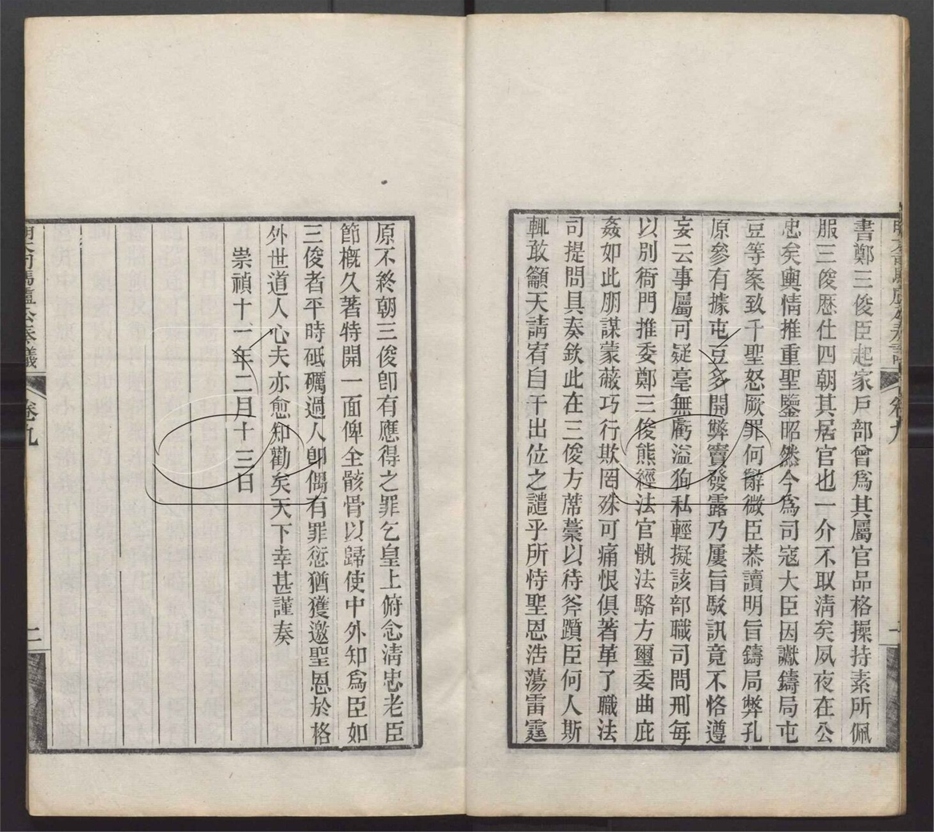 書鄭三俊臣起家戶部曾爲其屬官品格操持素所佩
服三俊歷仕四朝其居官也一介不取淸矣夙夜在公
忠矣輿情推重聖鑒昭然今爲司寇大臣因讞鑄局屯
豆等案致干聖怒厥罪何辭微臣恭讀明旨鑄局弊孔
原參有據屯豆多開弊竇發露乃屢旨駁訊竟不恪遵
妄云事屬可疑毫無虧溢狥私輕擬該部職司問刑每
以別衙門推委鄭三俊熊經法官骩法駱方璽委曲庇
姦如此朋謀蒙蔽巧行欺罔殊可痛恨俱著革了職法
司提問具奏欽此在三俊方蓆藁以待斧躓臣何人斯
輒敢籲天請宥自干出位之譴乎所恃聖恩浩蕩雷霆
原不終朝三俊卽有應得之罪乞皇上俯念淸忠老臣
節槪久著特開一面俾全骸骨以歸使中外知爲臣如
三俊者平時砥礪過人卽偶有罪愆猶獲邀聖恩於格
外世道人心夫亦愈知勸矣天下幸甚謹奏
崇禎十一年二月十三日
卷九
二